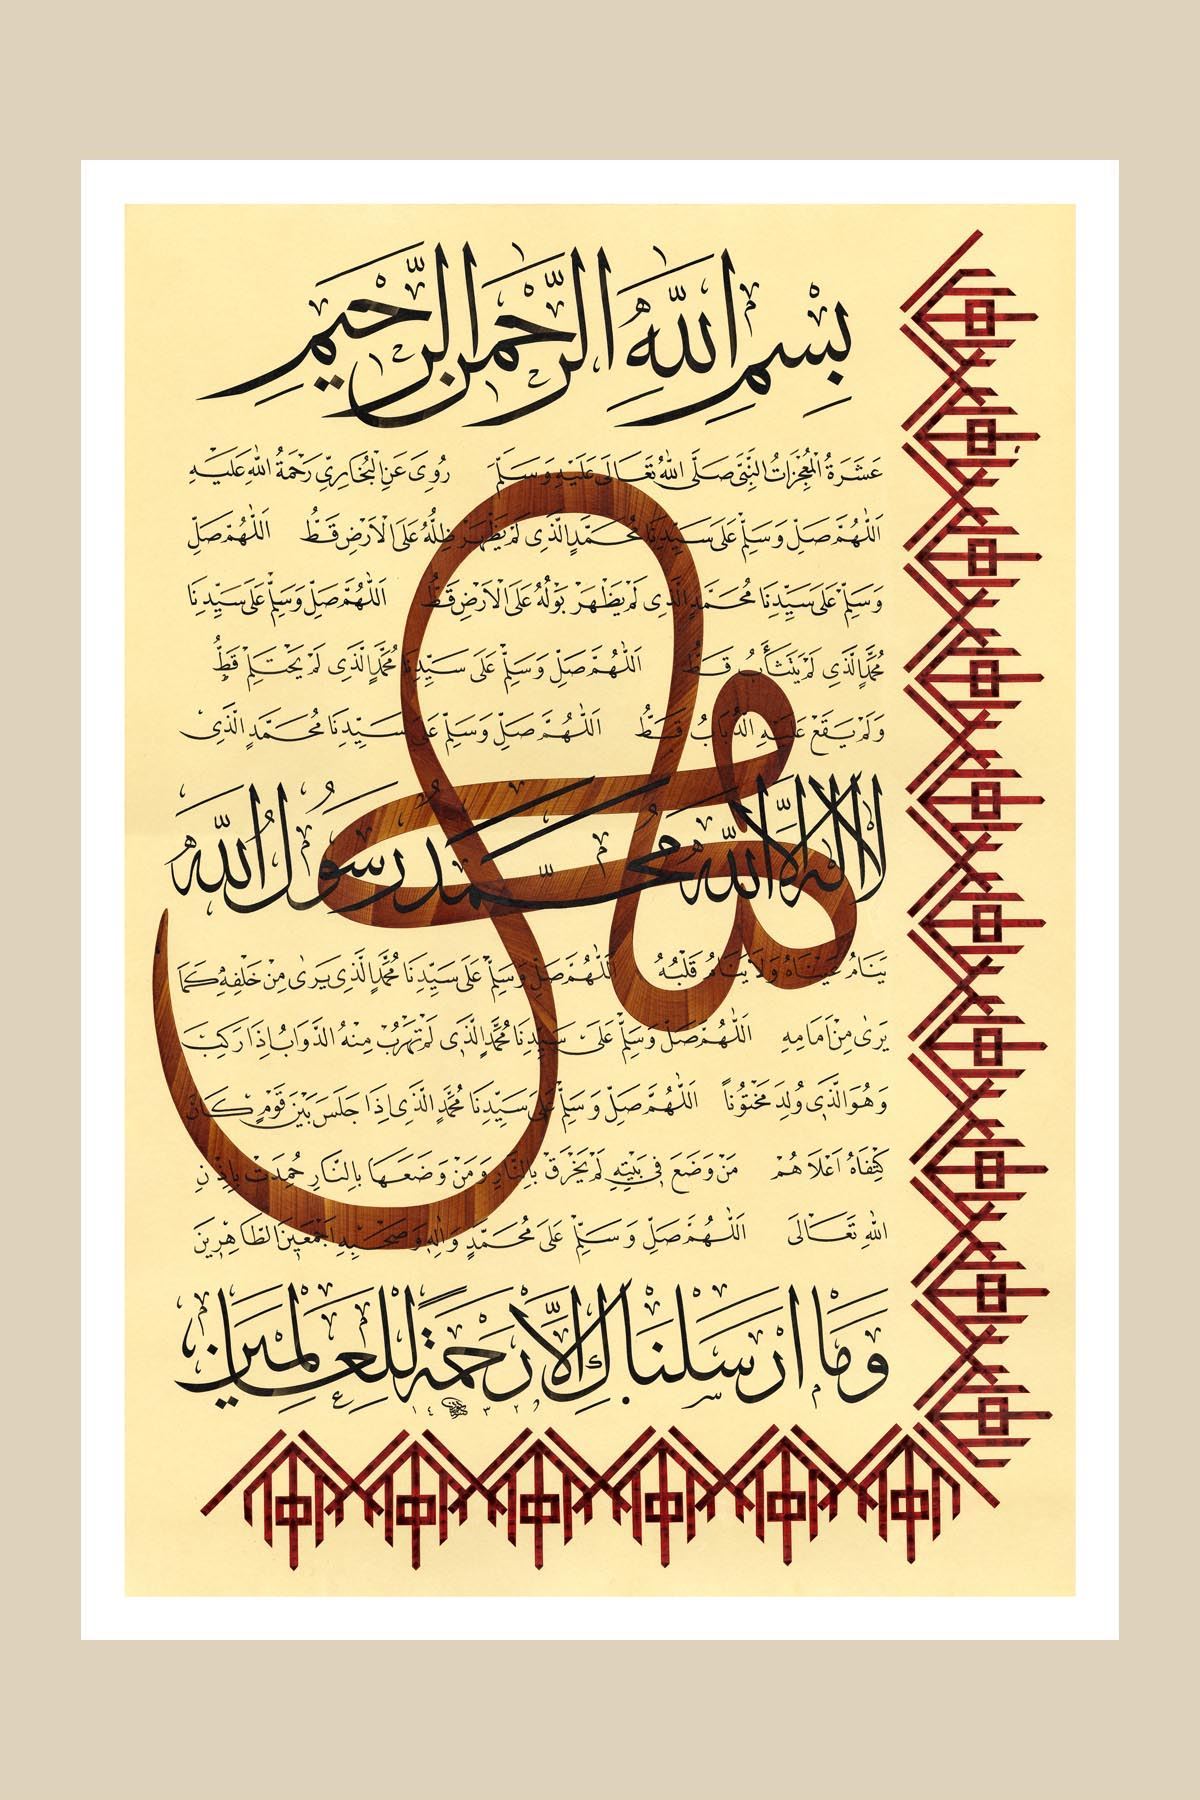 بِسْمِ اللهِ الرَّحْمٰنِ الرَّحِيْمِ
عَشَرَةُ الْمُعْجِزَاتُ النَّبِيِّ صَلَّى اللهُ تَعَالَى عَلَيْهِ وَسَلَّمَ رُوِيَ عَنِ الْبُخَارِيِّ رَحْمَةُ اللهِ عَلَيْهِ
اَللّٰهُمَّ صَلِّ وَسَلِّمْ عَلَى سَيِّدِنَا مُحَمَّدٍ الَّذِى لَمْ يَظْهَرْ ظِلُّهُ عَلَى الْاَرْضِ قَطُّ اَللّٰهُمَّ صَلِّ
وَسَلِّمْ عَلَى سَيِّدِنَا مُحَمَّدٍ الَّذِى لَمْ يَظْهَرْ بَوْلُهُ عَلَى الْاَرْضِ قَطُّ اَللّٰهُمَّ صَلِّ وَسَلِّمْ عَلَى سَيِّدِنَا
مُحَمَّدٍ الَّذِى لَمْ يَتَثَأَّبُ قَطُّ اَللّٰهُمَّ صَلِّ وَسَلِّمْ عَلَى سَيِّدِنَا مُحَمَّدٍ الَّذِى لَمْ يَحْتَلِمْ قَطُّ
وَلَمْ يَقَعْ عَلَيْهِ الذُّبَابُ قَطُّ اَللّٰهُمَّ صَلِّ وَسَلِّمْ عَلَى سَيِّدِنَا مُحَمَّدٍ الَّذِىْ
لَا اِلٰهَ اِلَّا اللهُ مُحَمَّدٌ رَسُوْلُ اللهِ
يَنَامُ عَيْنَاهُ وَلَا يَنَامُ قَلْبُهُ اَللّٰهُمَّ صَلِّ وَسَلِّمْ عَلَى سَيِّدِنَا مُحَمَّدٍ الَّذِى يَرىٰ مِنْ خَلْفِهِ كَمَا
يَرىٰ مِنْ اَمَامِهِ اَللّٰهُمَّ صَلِّ وَسَلِّمْ عَلىٰ سَيِّدِنَا مُحَمَّدٍ الَّذِى لَمْ تَهْرُبْ مِنْهُ الدَّوَابُ اِذَا رَكِبَ
وَهُوَ الَّذِى وُلِدَ مَخْتُوْنًا اَللّٰهُمَّ صَلِّ وَسَلِّمْ عَلَى سَيِّدِنَا مُحَمَّدٍ الَّذِى اِذَا جَلَسَ بَيْنَ قَوْمٍ كَانَ
كِتْفَاهُ اَعْلَاهُمْ مَنْ وَضَعَ فِى بَيْتِهِ لَمْ يَحْرَقْ بِالنَّارِ وَمَنْ وَضَعَهَا بِالنَّارِ خُمِدَتْ بِاِذْنِ
اللهِ تَعَالَى اَللّٰهُمَّ صَلِّ وَسَلِّمْ عَلىٰ مُحَمَّدٍ وَاٰلِهِ وَصَحْبِهِ اَجْمَعِيْنَ الطَّاهِرِيْنَ
وَمَا اَرْسَلْنَاكَ اِلَّا رَحْمَةً لِلْعَالَمِيْنَ